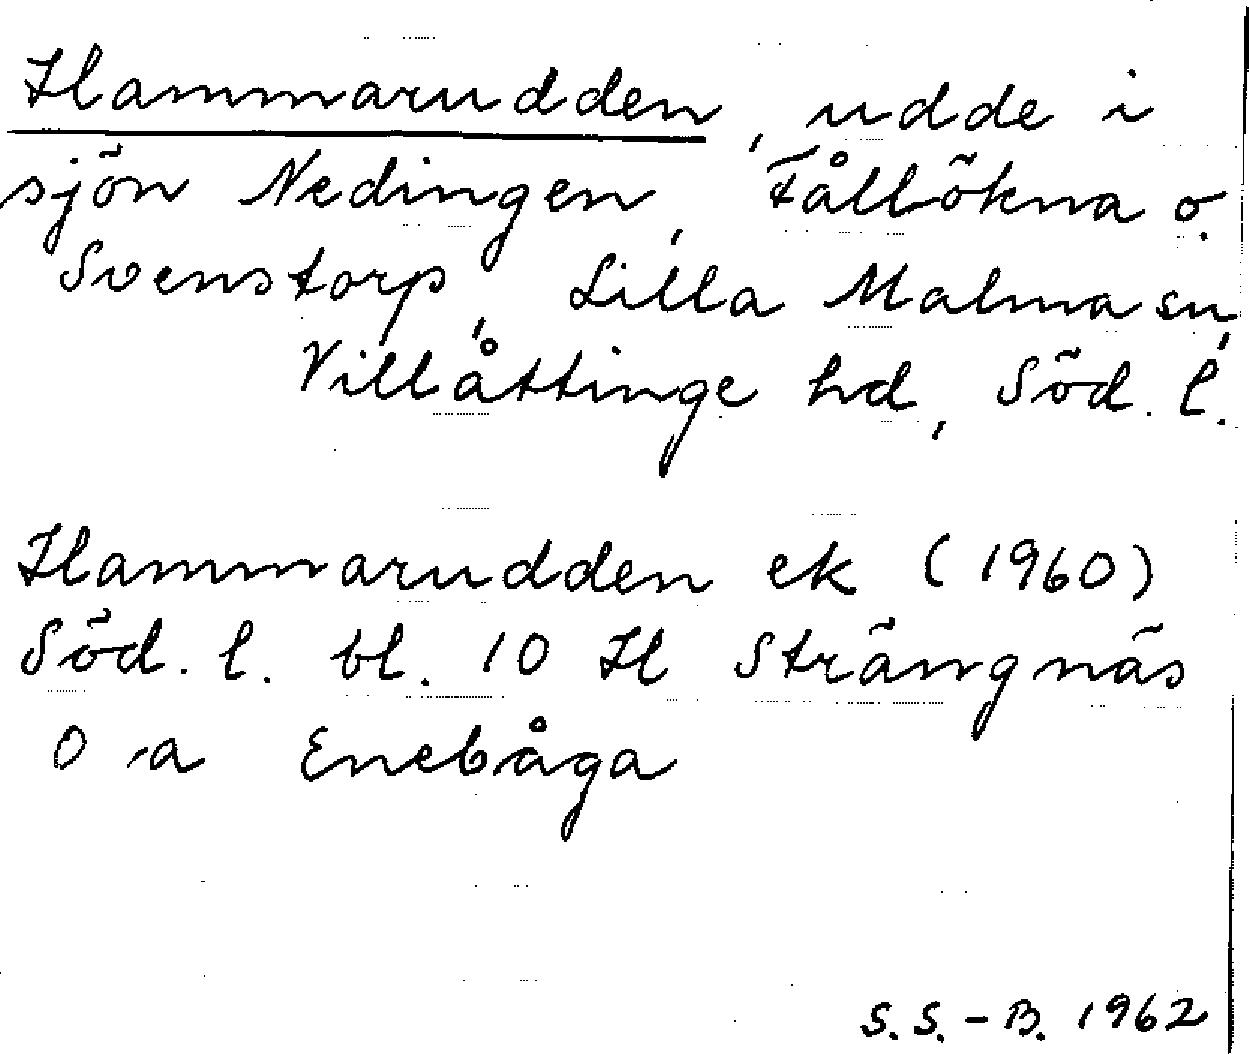 Hammarudden, udde i
sjön Nedingen, Fållökna o.
Svenstorp, Lilla Malma sn,
Villåttinge hd, Söd. l.
Hammarudden ek (1960)
Söd. l. bl. 10 H Strängnäs
O -a Enebåga
S. S. - B. 1962